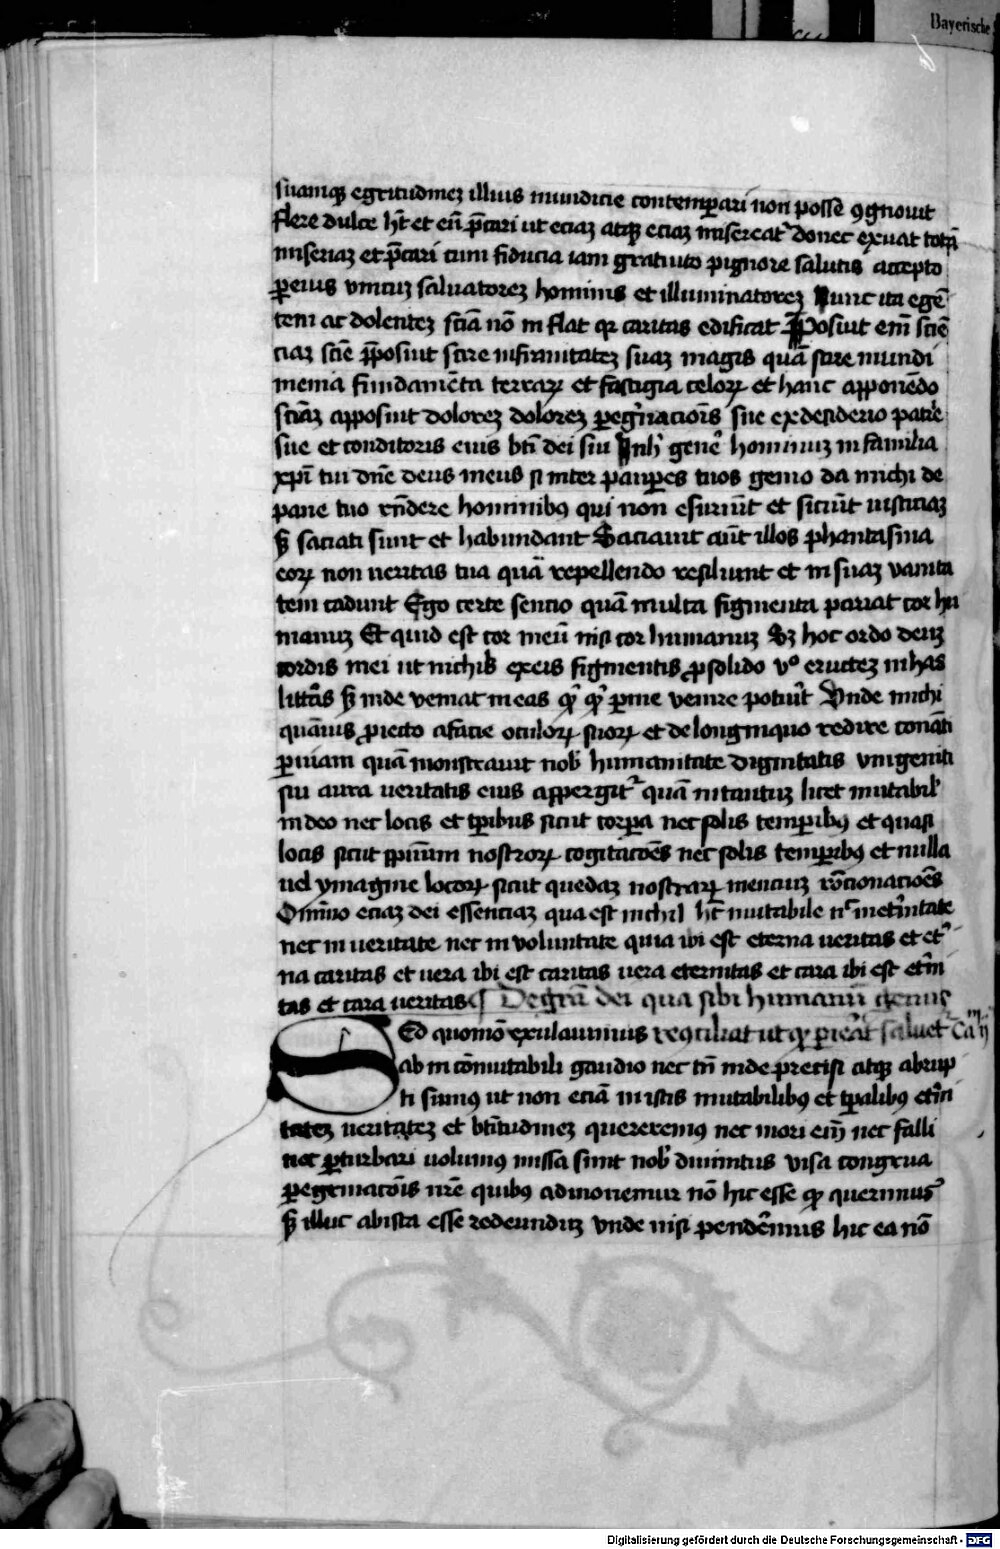 Bayerische
suamq3 egritudinez illius mundicie contemperari non posse 9gnouit
flere dulce h̄t et eū p̄cari ut eciaz atq3 eciaz misereat᷑ donec exuat totā
miseriaz et p̄cari cum fiducia iam gratuito pignore salutis accepto
ꝑ eius vnicuz saluatorez hominis et illuminatorez Hunc ita egē
tem ac dolentez sciā nō inflat qꝛ caritas edificat P̄posuit em̄ sciē
ciaz sciē p̄posuit scire infirmitatez suaz magis quā scire mundi
menia fundamēta terraꝝ et fastigia celoꝝ et hanc apponēdo
sciāz apposuit dolorez dolorez peg̓nacioīs sue ex desiderio patꝛ̄e
sue et conditoris eius bt̄i dei sui In h᷑ gene᷑ hominuz in familia
xp̄i tui dn̄e deus meus si inter pauꝑes tuos gemo da michi de
pane tuo rn̄dere hominibꝯ qui non esuriūt et siciūt iusticiaz
sꝫ saciati sunt et habundant Saciauit aūt illos phantasma
eoꝝ non ueritas tua quā repellendo resiliunt et in suaz vanita
tem cadunt Ego certe sencio quā multa figmenta pariat cor hu
manuz Et quid est cor meū nisi cor humanuz Sꝫ hoc oro deuz
cordis mei ut nichil ex eis figmentis ꝓ solido vº eructez in has
litt̄as sꝫ inde veniat in eas qͥ qͥ ꝑ me venire potuit᷑ Vnde michi
quāuis ꝓiecto a facie oculoꝝ suoꝝ et de longinquo redire conāti
ꝑ uiam quā monstrauit nob᷑ humanitate diginitatis vnigeniti
sui aura ueritatis eius aspergit᷑ quā in tantuz licet mutabil᷑
in deo nec locis et tp̄ribus sicut corpa nec solis temꝑibꝯ et quasi
locis sicut spirituum nostroꝝ cogitacoēs nec solis temꝑibꝯ et nulla
uel ymagine locoꝝ sicut quedaz nostraꝝ mentiuz rōcionacioēs
Omīno eciaz dei essenciaz qua est nichil h̄t mutabile nͨ in et᷑nitate
nec in ueritate nec in voluntate quia ibi est eterna ueritas et et᷑
na caritas et uera ibi est caritas uera eternitas et cara ibi est et᷑ni
tas et cara ueritas ¶ De grā dei qua sibi humanū genus
Sed quomō exulauimus reꝯciliat ut qͥ ꝑierāt saluet Cam ij
ab incōmutabili gaudio nec tn̄ inde precisi atq3 abrup
ti sumꝯ ut non eciā in istis mutabilibꝯ et tp̄alibꝯ et᷑ni
tatez ueritatez et bt̄itudinez quereremꝯ nec mori em̄ nec falli
nec ꝑturbari uolumꝯ missa sunt nob᷑ diuinitus visa congrua
ꝑegrinacōis nr̄e quibꝯ admonemur nō hic esse qͦ querimus
sꝫ illuc ab ista esse redeunduz vnde nisi pendēmus hic ea nō
Digitalisierung gefördert durch die Deutsche Forschungsgemeinschaft - DFG